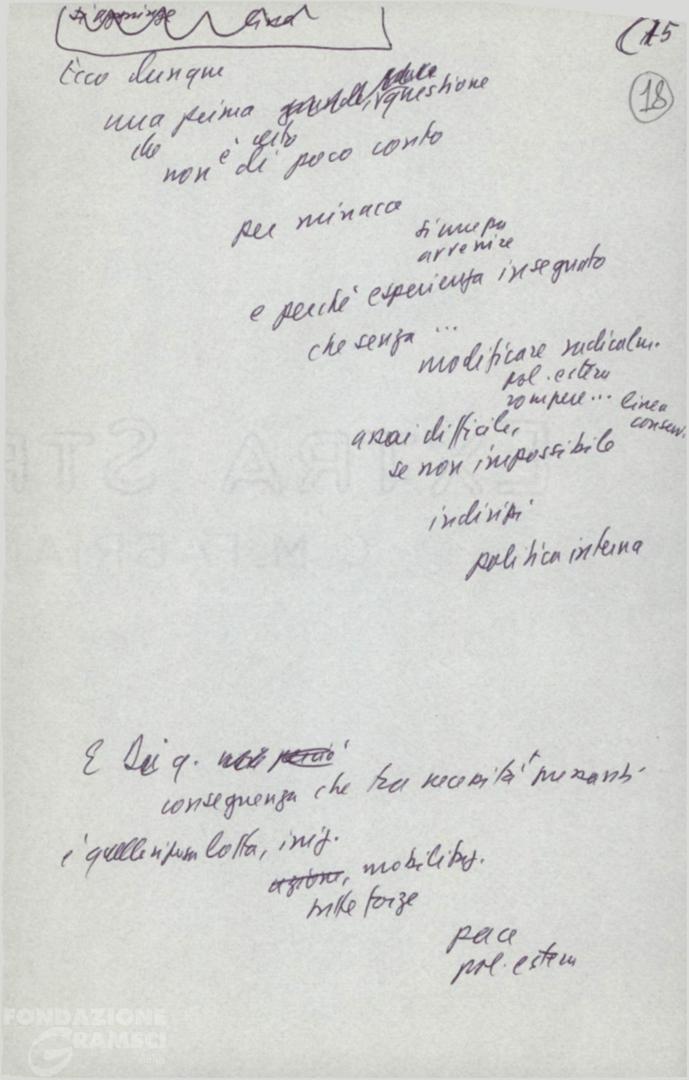 (15
18
Ecco dunque
una prima questione
che è certo
non di poco conto
per minacce
si mepa
avvenire
e perché esperienza insegnato
che senza ...
modificare radicalm.
pol. estera
rompere... linea
conserv.
assai difficile,
se non impossibile
indirizzi
politica interna
E Di q.
conseguenza che tra necessità
è quelle lotta, iniz.
azione, mobilitaz.
mille forze
pace
pol. estera
FONDAZIONE
GRAMSCI